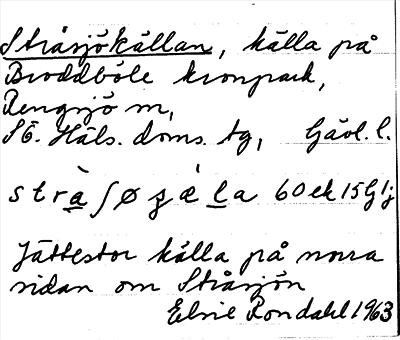 Stråsjökällan, källa på
Broddböle kronpark,
Rengsjö m,
SÖ. Häls. doms. tg, Gävl. l.
stràʃø ɕè la 60 ek 15 G 1j
Jättestor källa på norra
sidan om Stråsjön
Elsie Rondahl 1963